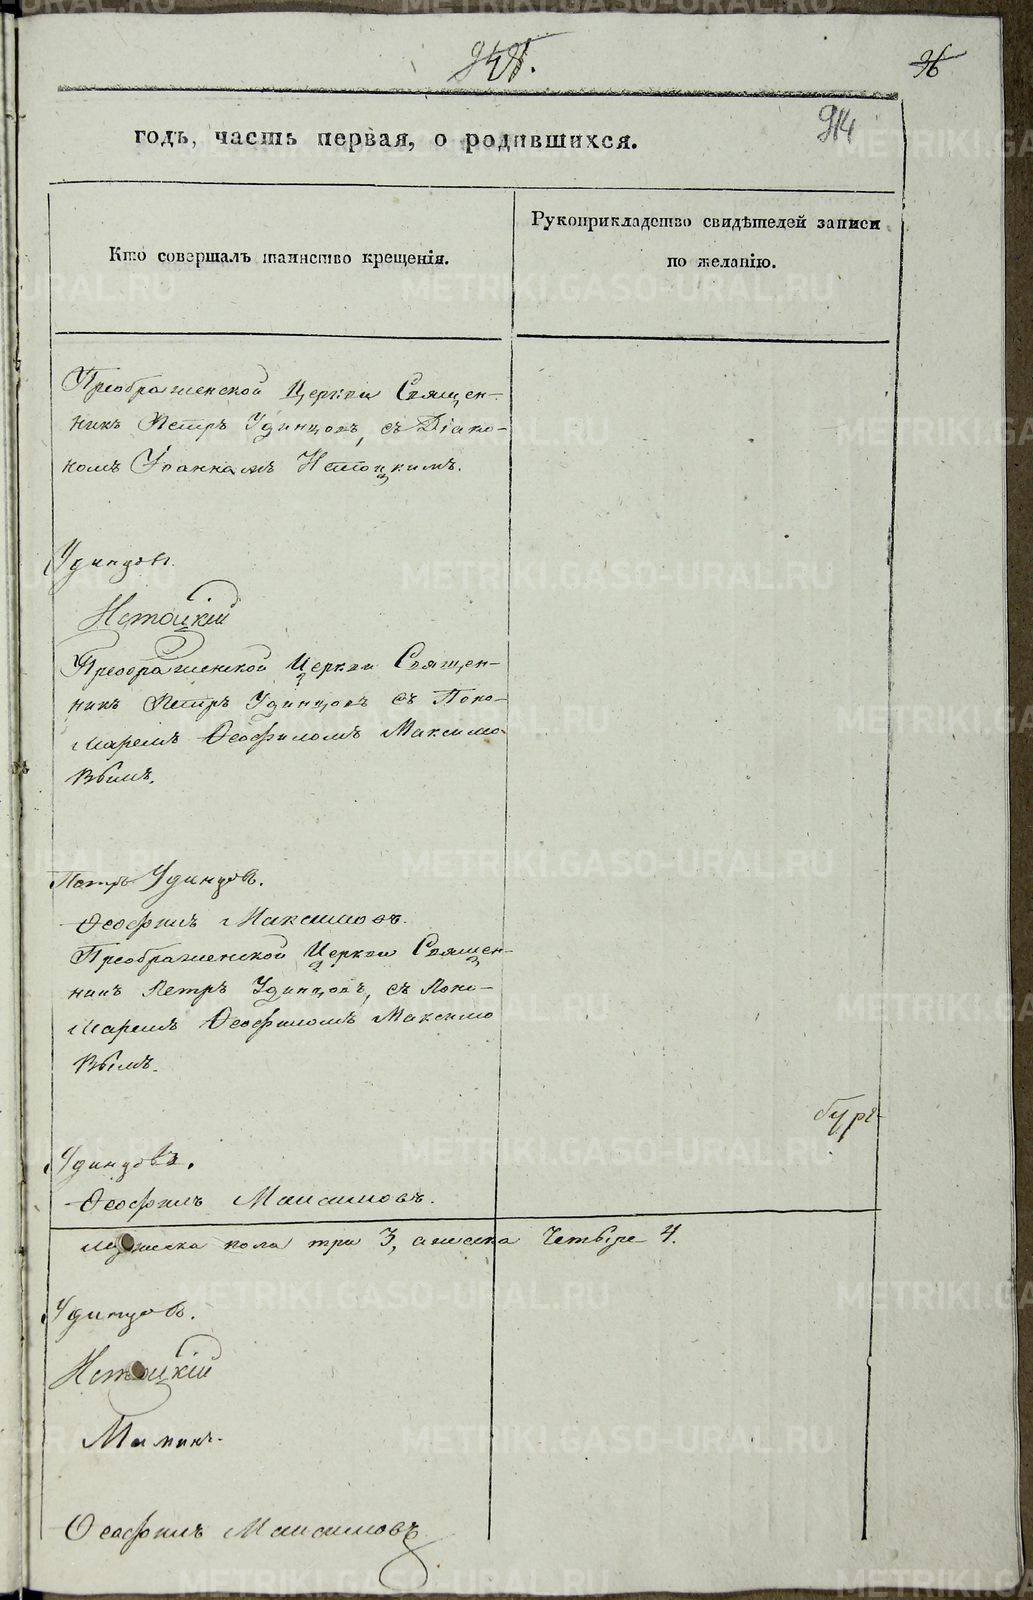 914
годъ, часть первая, о родившихся.
Кто совершалъ таинство крещенія.
Рукоприкладство свидѣтелей записи
по желанію.
Преображенской Церкви Священ-
никъ Петръ Удинцовъ, съ Діако-
номъ Іоанномъ Истоцкимъ.
Удинцовъ.
Истоцкій
Преображенской Церкви Священ-
никъ Петръ Удинцовъ съ Поно-
маремъ Ѳеофиломъ Максимо-
вымъ.
Петръ Удинцовъ.
Ѳеофилъ Максимовъ.
Преображенской Церкви Священ-
никъ Петръ Удинцовъ, съ Поно-
маремъ Ѳеофиломъ Максимо
вымъ.
Удинцовъ.
Ѳеофилъ Максимовъ.
мужеска пола три 3, женска четыре 4.
Удинцовъ.
Истоцкій
Маминъ.
Ѳеофилъ Максимовъ
METRIKI.GASO-URAL.RU